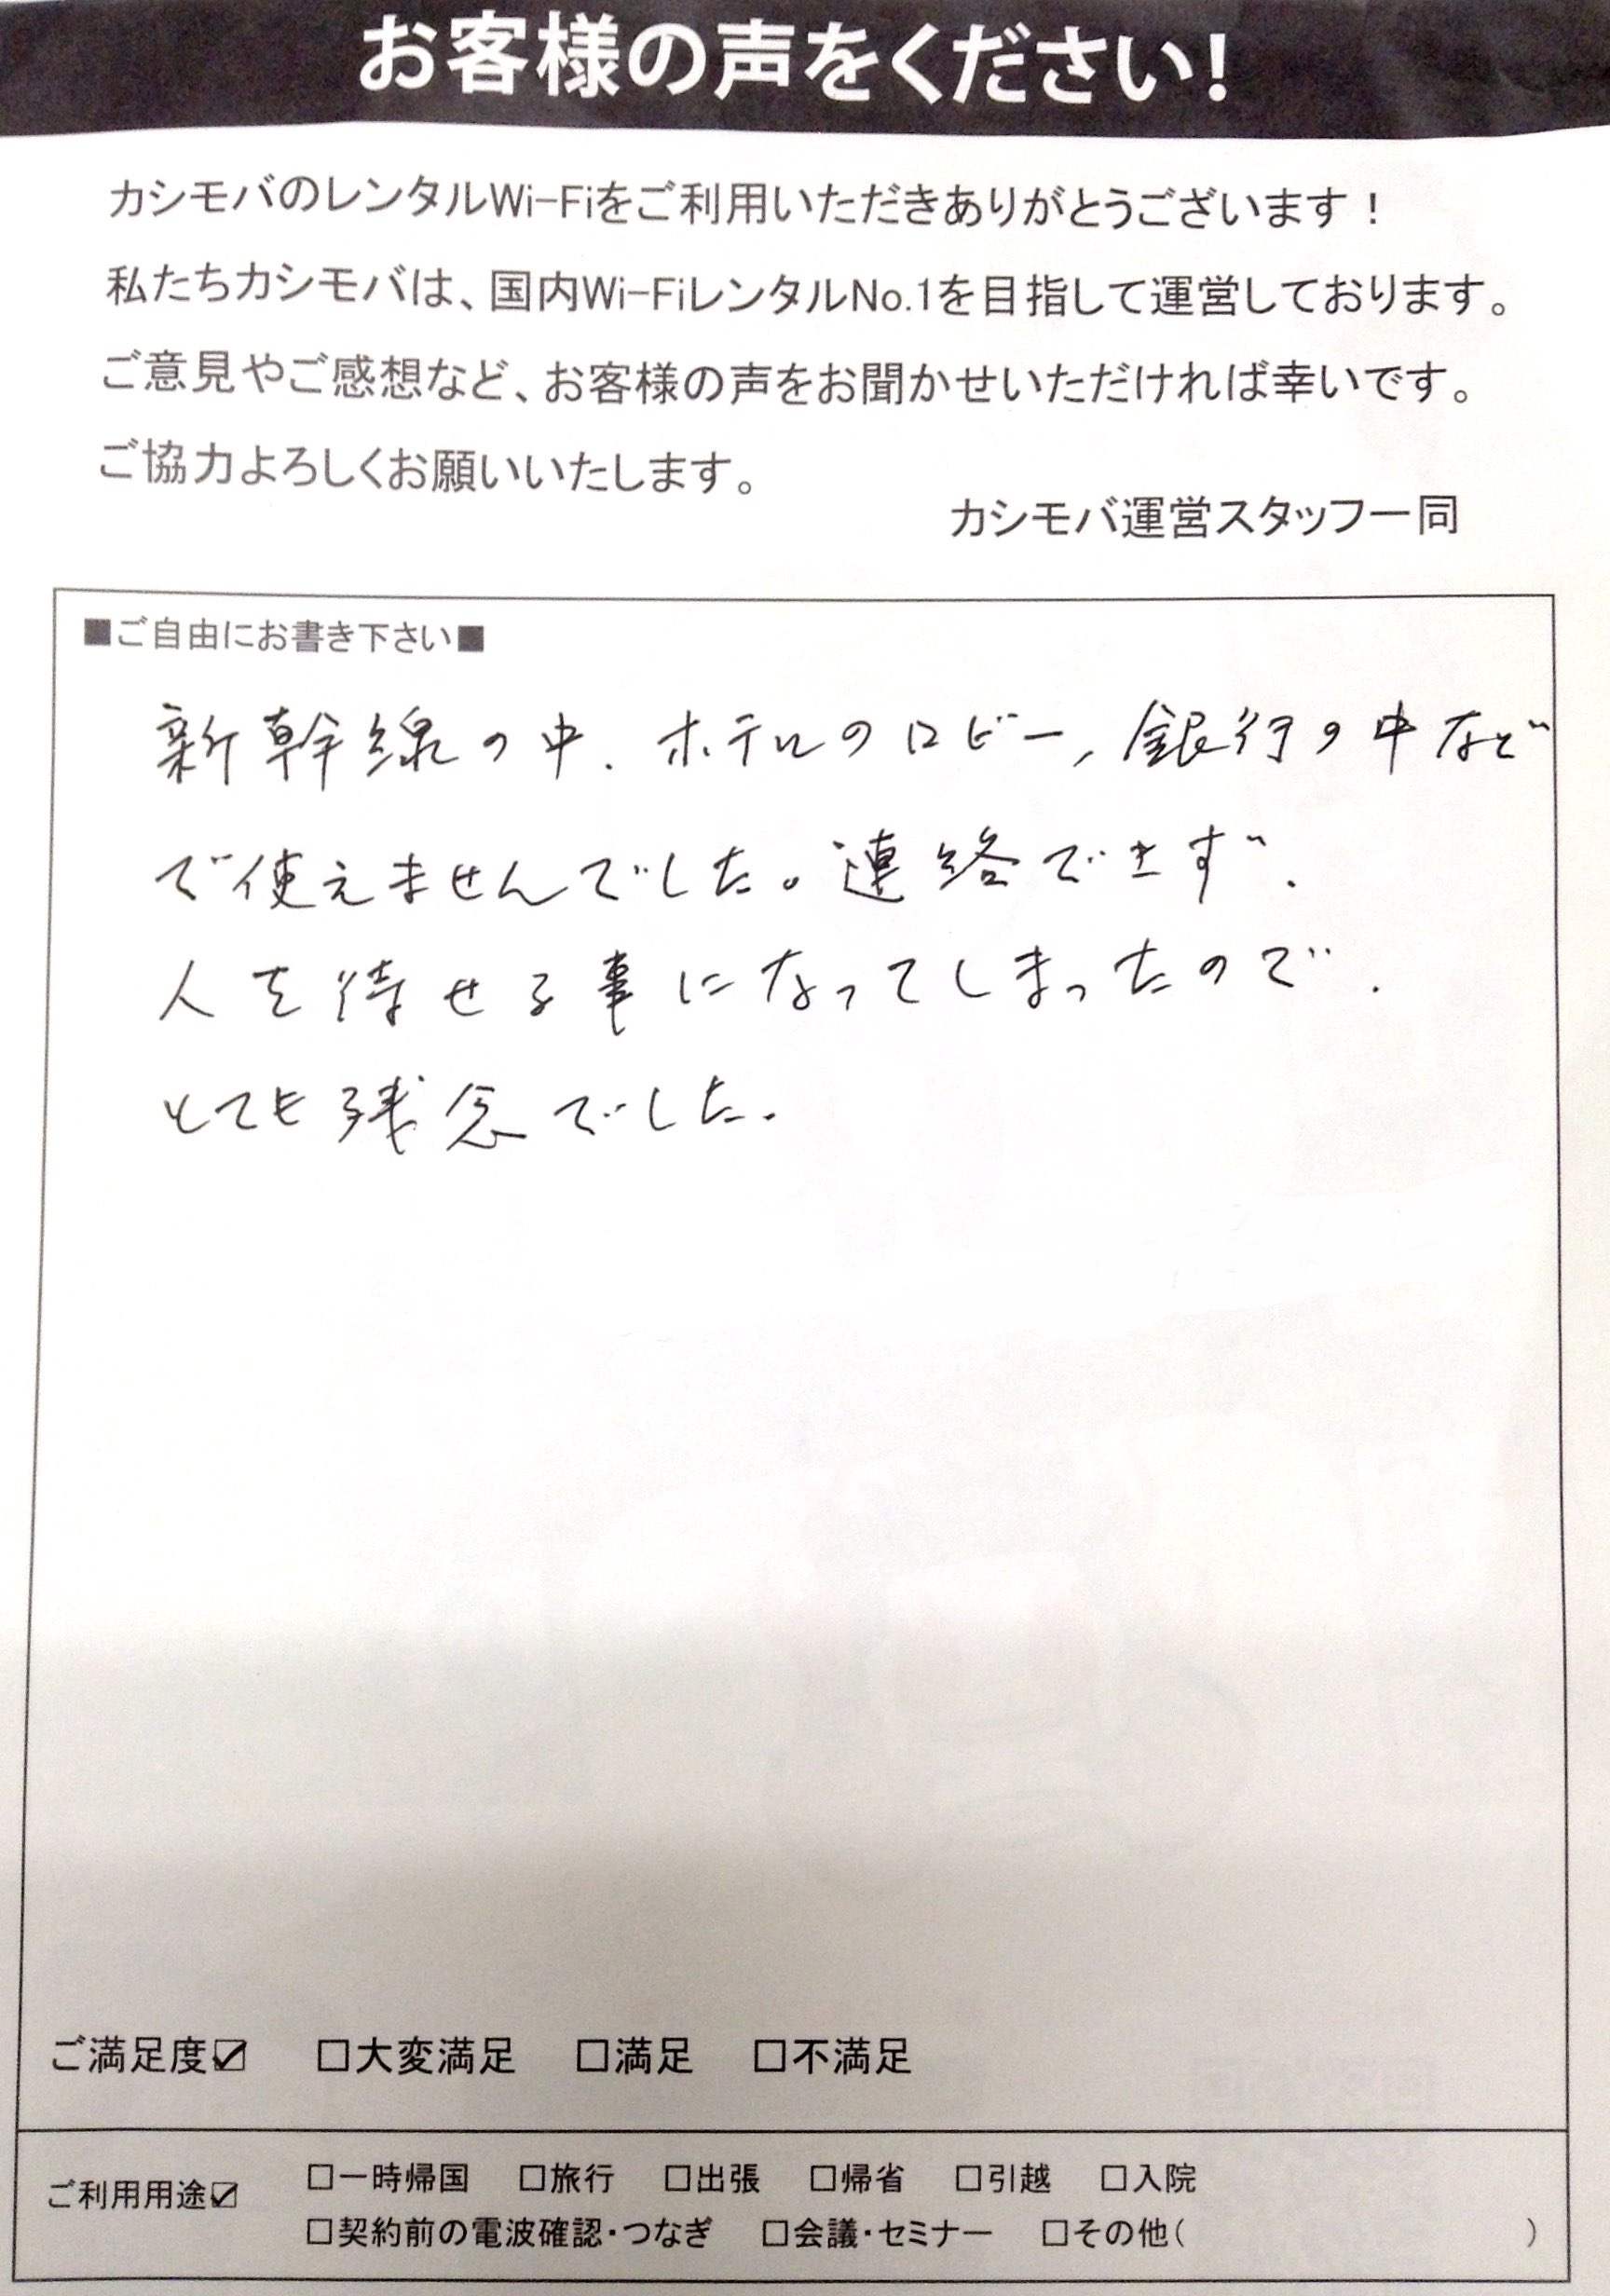 お客様の声をください!
カシモバのレンタルWi-Fiをご利用いただきありがとうございます！
私たちカシモバは、国内Wi-FiレンタルNo.1を目指して運営しております。
ご意見やご感想など、お客様の声をお聞かせいただければ幸いです。
ご協力よろしくお願いいたします。
カシモバ運営スタッフ一同
■ご自由にお書き下さい■
新幹線の中、ホテルのロビー、銀行の中など
で使えませんでした。連絡できず、
人を待せる事になってしまったので、
とても残念でした。
ご満足度☑ □大変満足 □満足 □不満足
ご利用用途☑ □一時帰国 □旅行 □出張 □帰省 □引越 □入院
□契約前の電波確認・つなぎ □会議・セミナー □その他( )